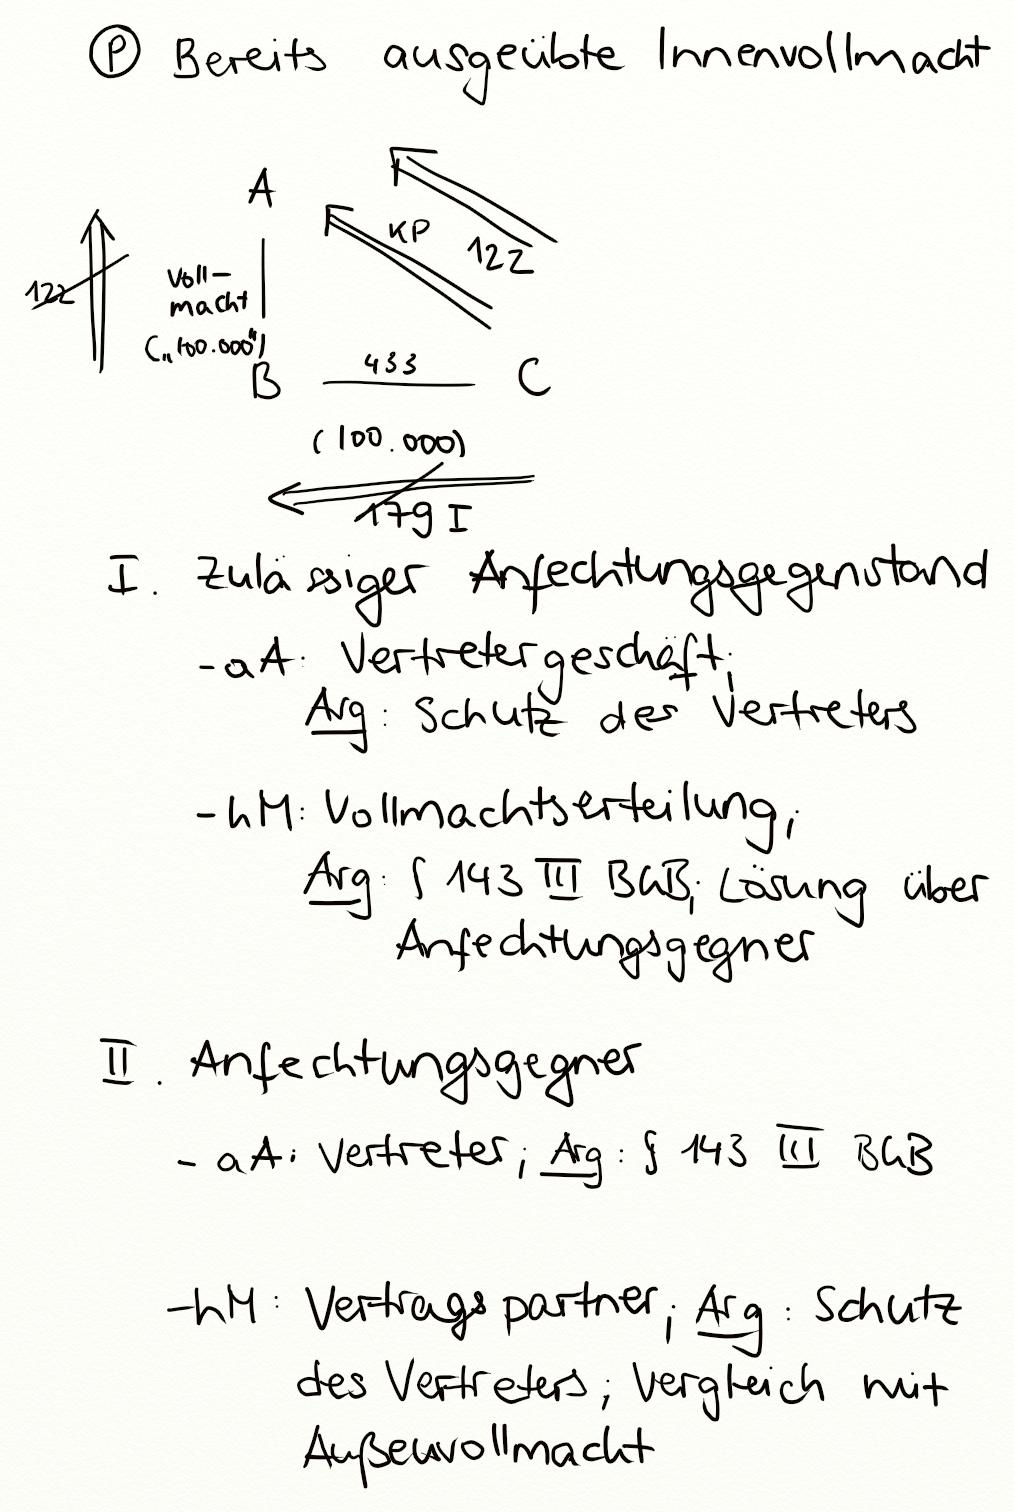 Ⓟ Bereits ausgeübte Innenvollmacht
A
KP
122
122
Voll-
macht
(„100.000")
B
433
C
(100.000)
179 I
I. Zulässiger Anfechtungsgegenstand
- aA: Vertretergeschäft;
Arg: Schutz des Vertreters
- hM: Vollmachtserteilung;
Arg: § 143 III BGB; Lösung über
Anfechtungsgegner
II. Anfechtungsgegner
- aA: Vertreter; Arg: § 143 III BGB
- hM: Vertragspartner; Arg: Schutz
des Vertreters; Vergleich mit
Außenvollmacht